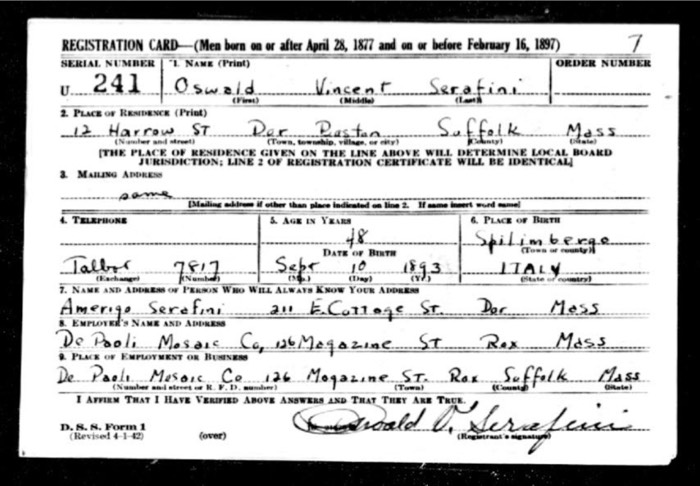 REGISTRATION CARD—(Men born on or after April 28, 1877 and on or before February 16, 1897) 7
SERIAL NUMBER 1. NAME (Print) ORDER NUMBER
U 241 Oswald Vincent Serafini
(First) (Middle) (Last)
2. PLACE OF RESIDENCE (Print)
12 Harrow ST Dor Boston Suffolk Mass
(Number and street) (Town, township, village, or city) (County) (State)
[THE PLACE OF RESIDENCE GIVEN ON THE LINE ABOVE WILL DETERMINE LOCAL BOARD
JURISDICTION; LINE 2 OF REGISTRATION CERTIFICATE WILL BE IDENTICAL]
3. MAILING ADDRESS
same
[Mailing address if other than place indicated on line 2. If same insert word same]
4. TELEPHONE 5. AGE IN YEARS 6. PLACE OF BIRTH
48 Spilimbergo
DATE OF BIRTH (Town or county)
Talbot 7817 Sept 10 1893 ITALY
(Exchange) (Number) (Mo.) (Day) (Yr.) (State or country)
7. NAME AND ADDRESS OF PERSON WHO WILL ALWAYS KNOW YOUR ADDRESS
Amerigo Serafini 211 E. Cottage ST. Dor Mass
8. EMPLOYER'S NAME AND ADDRESS
De Paoli Mosaic Co, 126 Magazine ST Rox Mass
9. PLACE OF EMPLOYMENT OR BUSINESS
De Paoli Mosaic Co 126 Magazine ST. Rox Suffolk Mass
(Number and street or R. F. D. number) (Town) (County) (State)
I AFFIRM THAT I HAVE VERIFIED ABOVE ANSWERS AND THAT THEY ARE TRUE.
Oswald V. Serafini
D. S. S. Form 1
(Revised 4-1-42) (over) (Registrant's signature)